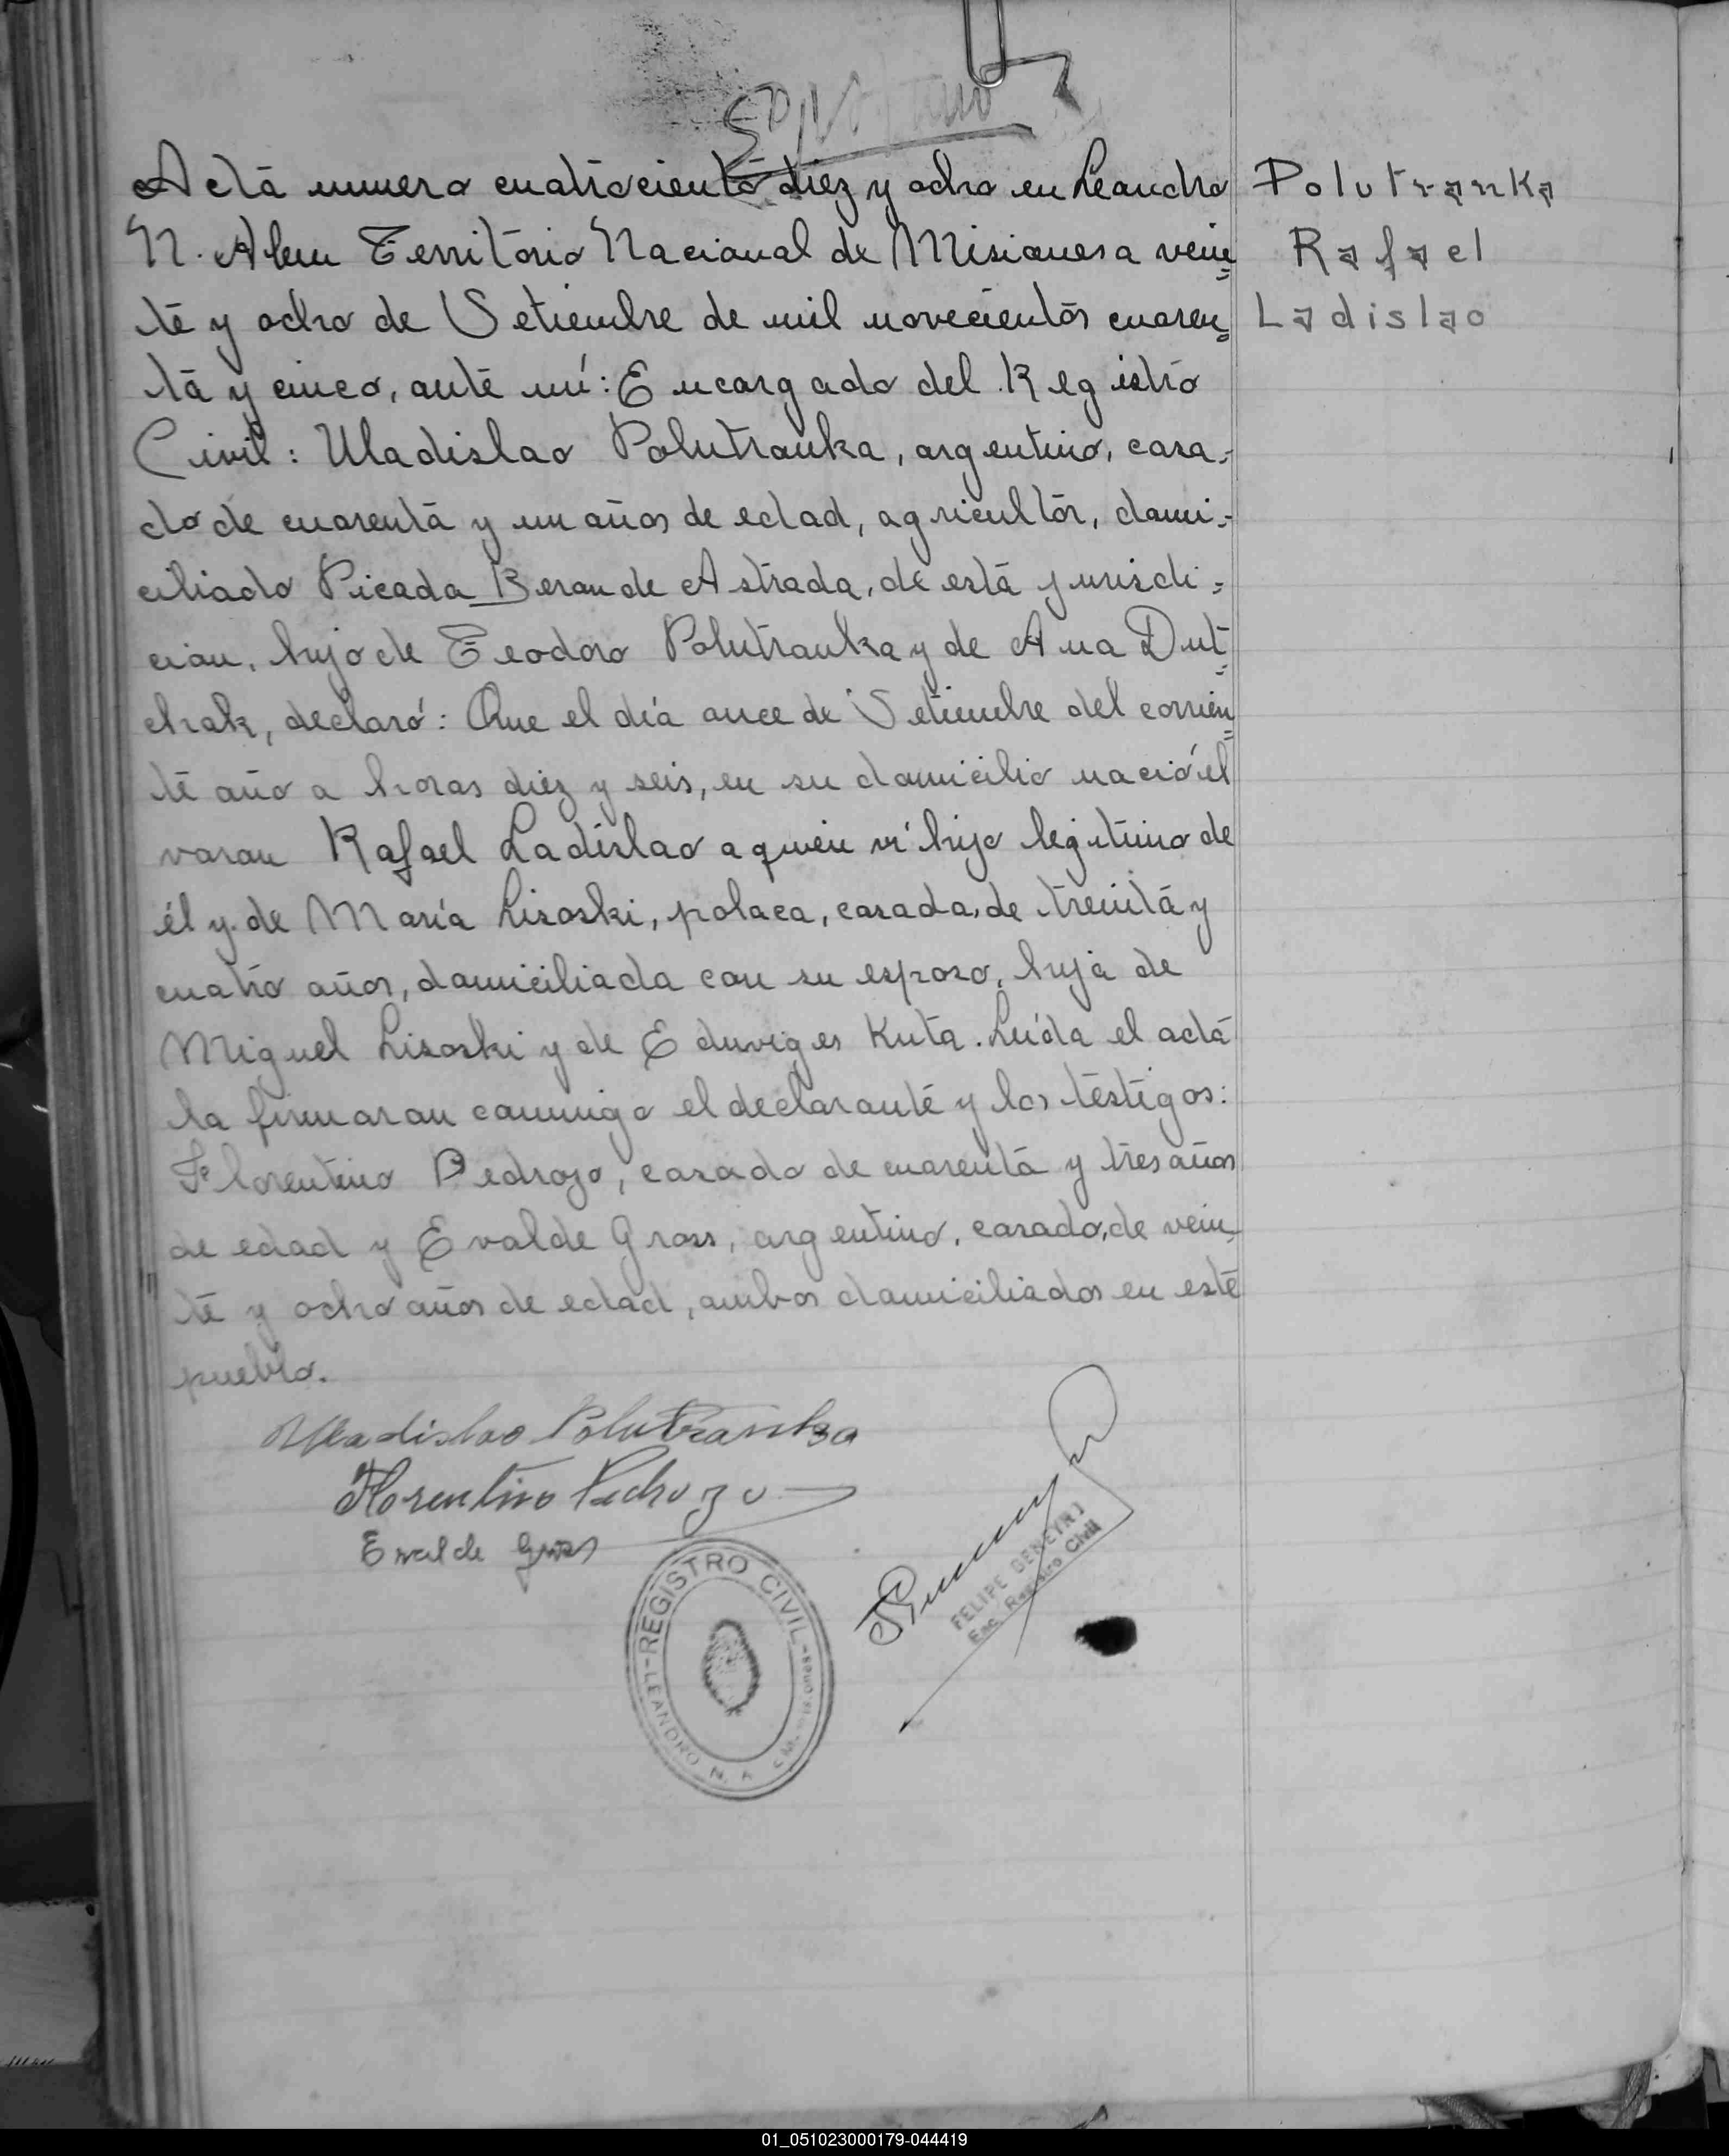 Acta numero cuatrociento diez y ocho en Leandro
N. Alem Territorio Nacional de Misiones a vein=
te y ocho de Setiembre de mil novecientos cuaren=
ta y cinco, ante mí: Encargado del Registro
Civil: Uladislao Polutranka, argentino, casa-
do de cuarenta y un años de edad, agricultor, domi-
ciliado Picada Beron de Astrada, de esta jurisdi=
cion, hijo de Teodoro Polutranka y de Ana Dut=
chak, declaró: Que el día once de Setiembre del corrien=
te año a horas diez y seis, en su domicilio nació el
varon Rafael Ladislao a quien ví hijo legitimo de
él y de María Lisoski, polaca, casada, de treinta y
cuatro años, domiciliada con su esposo, hija de
Miguel Lisoski y de Eduviges Kuta. Leída el acta
la firmaron conmigo el declarante y los testigos:
Florentino Pedrozo, casado de cuarenta y tres años
de edad y Evalde Gross, argentino, casado, de vein-
te y ocho años de edad, ambos domiciliados en este
pueblo.
Polutranka
Rafael
Ladislao
Uladislao Polutranka
Florentino Pedrozo
Evalde Gross
FELIPE GENEYRI
Enc. Registro Civil
REGISTRO CIVIL
LEANDRO N. A
01_051023000179-044419